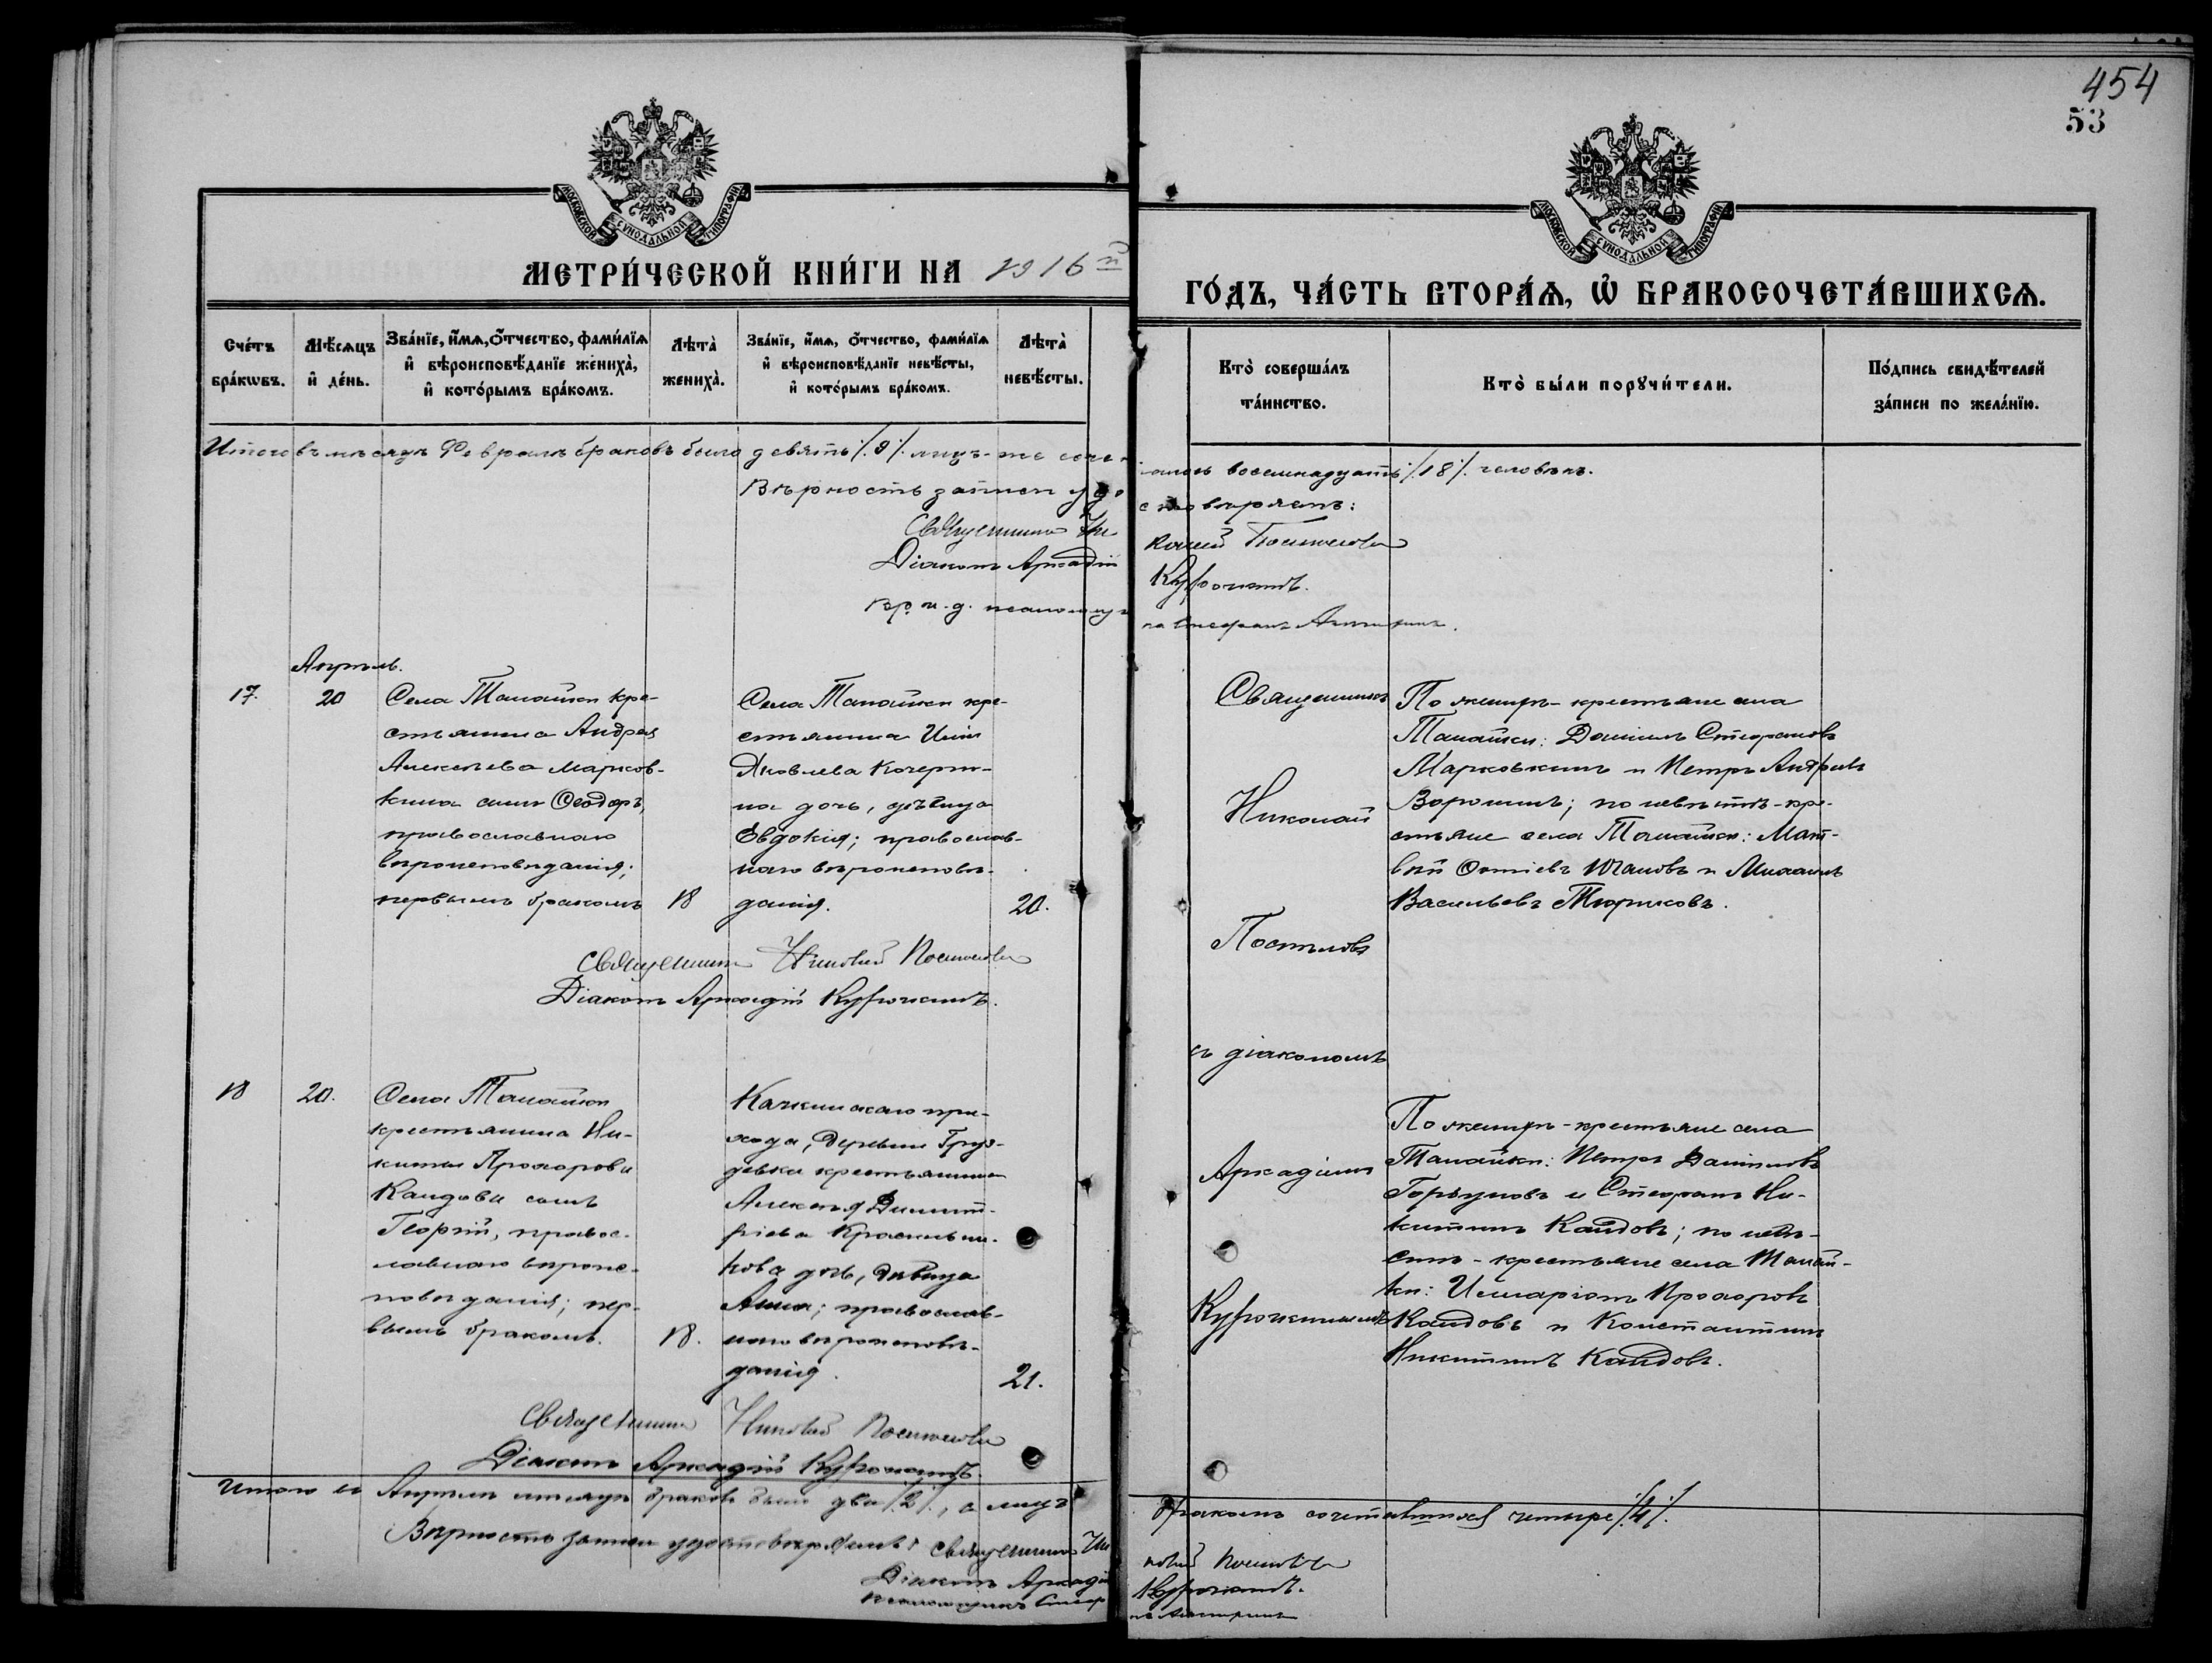 454
53
МОСКОВСКОЙ СѴНОДАЛЬНОЙ ТИПОГРАФІИ
МОСКОВСКОЙ СѴНОДАЛЬНОЙ ТИПОГРАФІИ
МЕТРИ́ЧЕСКОЙ КНИ́ГИ НА 1916й
ГО́ДЪ, ЧА́СТЬ ВТОРА́Ѧ, Ѡ҆ БРАКОСОЧЕТА́ВШИХСѦ.
Сче́тъ бра́кѡвъ.
Мѣ́сѧцъ и҆ де́нь.
Зва́нїе, и҆́мѧ, ѻ҆́тчество, фами́лїѧ
и҆ вѣроисповѣ́данїе жениха̀,
и҆ кото́рымъ бра́комъ.
Лѣта̀ жениха̀.
Зва́нїе, и҆́мѧ, ѻ҆́тчество, фами́лїѧ
и҆ вѣроисповѣ́данїе невѣ́сты,
и҆ кото́рымъ бра́комъ.
Лѣта̀ невѣ́сты.
Кто̀ соверша́лъ та́инство.
Кто̀ бы́ли порꙋчи́тели.
По́дпись свидѣ́телей
за́писи по жела́нїю.
Итого въ мѣсяцѣ Февралѣ браковъ было девять /9/. лицъ-же соче-
талось восемнадцать /18/. человѣкъ.
Вѣрность записи удо
стовѣряемъ:
Священникъ Ни
колай Поспѣловъ
Діаконъ Аркадій
Курочкинъ.
Вр. и. д. псаломщи
ка Стефанъ
Апрѣль.
17.
20
Села Танайки кре-
стьянина Андрея
Алексѣева Марков-
кина сынъ Ѳеодоръ,
православнаго
вѣроисповѣданія;
первымъ бракомъ
18
Села Танайки кре-
стьянина Иліи
Яковлева Кочерги-
на дочь, дѣвица
Евдокія; православ-
наго вѣроисповѣ-
данія.
20.
Священникъ Николай Поспѣловъ
Діаконъ Аркадій Курочкинъ.
Священникъ
Николай
Поспѣловъ
съ діакономъ
Аркадіемъ
Курочкинымъ
По женихѣ - крестьяне села
Танайки: Даніилъ Стефановъ
Марковкинъ и Петръ Андреевъ
Воронинъ; по невѣстѣ - кре-
стьяне села Танайки: Мат-
вѣй Ѳотіевъ и Михаилъ
Васильевъ Тюриковъ.
18
20.
Села Танайки
крестьянина Ни-
киты Прохорова
Каидова сынъ
Георгій, правос-
лавнаго вѣроис-
повѣданія; пер-
вымъ бракомъ.
18.
Качкинскаго при-
хода, деревни Груз-
девки крестьянина
Алексѣя Димит-
ріева Красильни-
кова дочь, дѣвица
Анна; православ-
наго вѣроисповѣ-
данія.
21.
По женихѣ - крестьяне села
Танайки: Петръ Даніиловъ
Горбуновъ и Стефанъ Ни-
китинъ Каидовъ; по невѣ-
стѣ - крестьяне села Танай-
ки: Иларіонъ Прохоровъ
Каидовъ и Константинъ
Никитинъ Каидовъ.
Священникъ Николай Поспѣловъ
Діаконъ Аркадій Курочкинъ.
Итого въ Апрѣлѣ мѣсяцѣ браковъ было два /2/., а лицъ
бракомъ сочетавшихся четыре /4/.
Вѣрность записи удостовѣряемъ: Священникъ Ни
колай Поспѣловъ
Діаконъ Аркадій
Курочкинъ.
Псаломщикъ Стеф